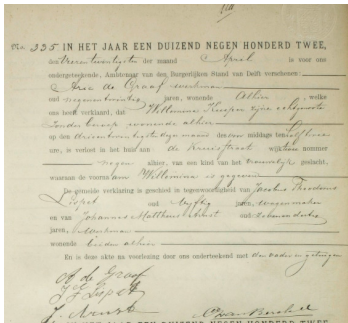 No. 335 IN HET JAAR EEN DUIZEND NEGEN HONDERD TWEE,
den vierentwintigsten der maand April is voor ons
ondergeteekende, Ambtenaar van den Burgerlijken Stand van Delft verschenen:
Arie de Graaf werkman
oud negenentwintig jaren, wonende alhier, welke
ons heeft verklaard, dat Willemina Kuiper zijne echtgenoote
zonder beroep wonende alhier
op den drieentwintigsten dezer des middags ten half twee
ure, is verlost in het huis aan de Kruisstraat wijk nommer
negen alhier, van een kind van het vrouwelijk geslacht,
waaraan de voornaam Willemina is gegeven
De gemelde verklaring is geschied in tegenwoordigheid van Jacobus Theodorus
Lispet oud vijftig jaren, wagenmaker
en van Johannes Mattheus Arnst oud
jaren, werkman
wonende beiden alhier
En is deze akte na voorlezing door ons onderteekend met den vader en getuigen
A de Graaf
J T Lispet
J. Arnst